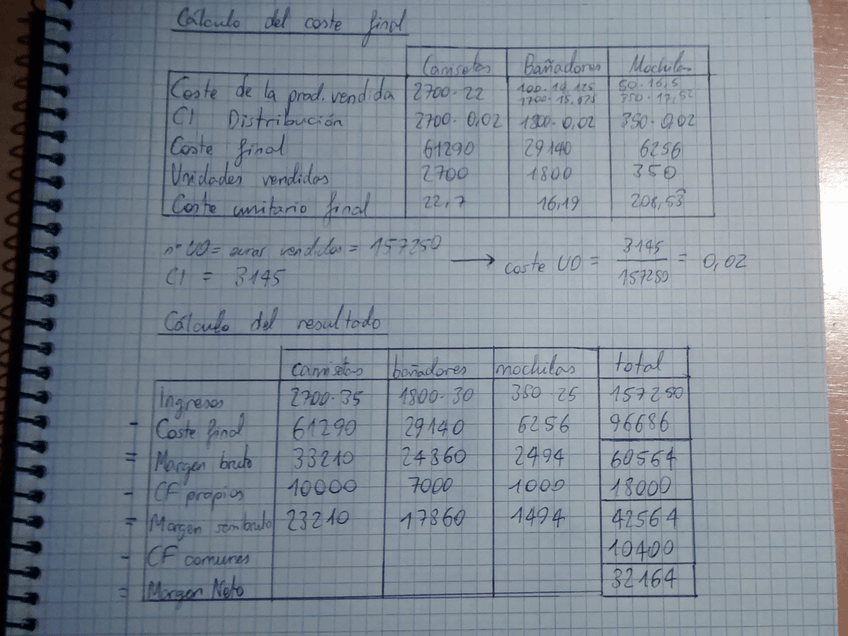 Cálculo del coste final
Camisetas Bañadores Mochilas
Coste de la prod. vendida 2700·22 100·14,125 50·16,5
1700·15,875 350·17,52
CI Distribución 2700·0,02 1800·0,02 350·0,02
Coste final 61290 29140 6256
Unidades vendidas 2700 1800 350
Coste unitario final 22,7 16,19 208,53
nº UO = euros vendidos = 157250
CI = 3145
coste UO = 3145 / 157250 = 0,02
Cálculo del resultado
camisetas bañadores mochilas total
Ingresos 2700·35 1800·30 350·25 157250
- Coste final 61290 29140 6256 96686
= Margen bruto 33210 24860 2494 60564
- CF propios 10000 7000 1000 18000
= Margen semibruto 23210 17860 1494 42564
- CF comunes 10400
= Margen Neto 32164